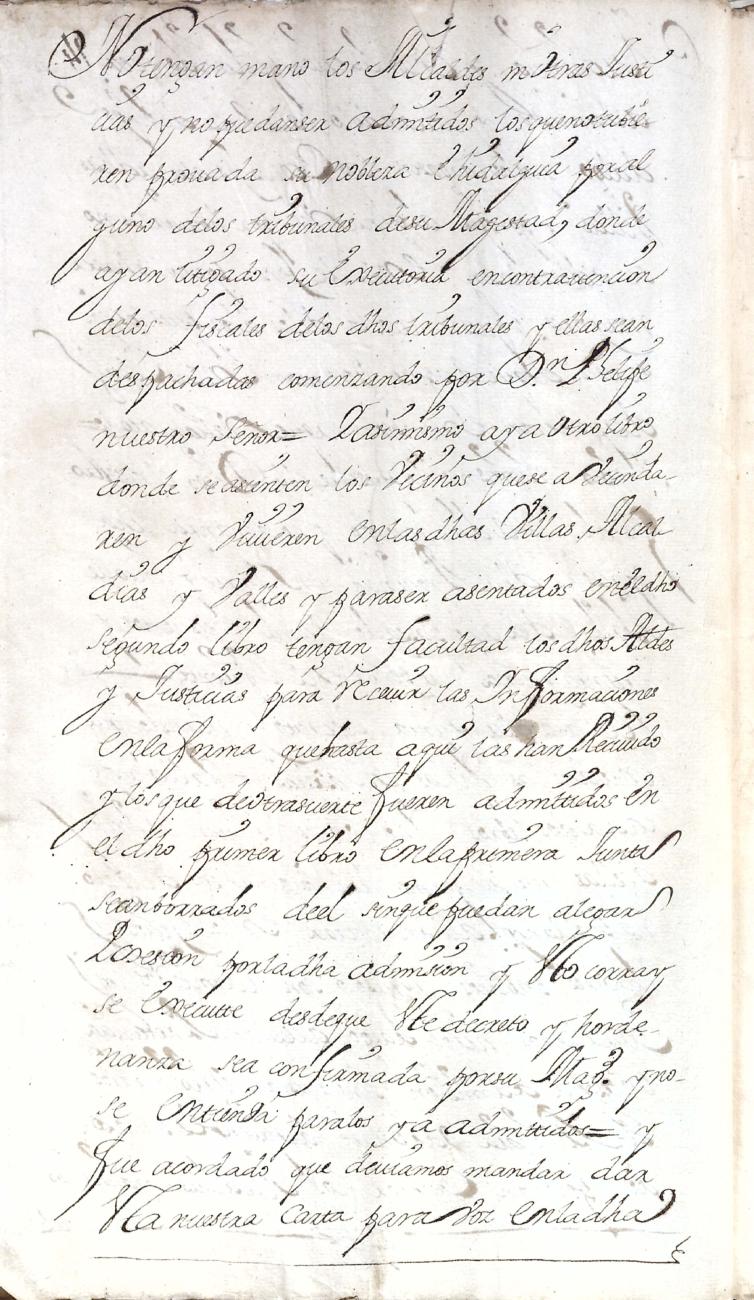 No tengan mano los Alcaldes ni otras Justi
cias y no puedan ser admitidos los que no tubie
ren prouada su nobleza e hidalguia por al
guno de los tribunales de su Magestad, donde
ayan litigado su Executoria en contrauencion
de los fiscales de los dhos tribunales y ellas sean
despachadas comenzando por Dn. Phelipe
nuestro Señor= Y asimismo aya otro libro
donde se asienten los Vecinos que se aVecinda-
ren y Viuieren en las dhas Villas, Alcal
dias y Valles y para ser asentados en el dho
segundo libro tengan facultad los dhos Aldes
y Justicias para Receuir las Informaciones
en la forma que hasta aqui las han Reciuido
y los que de otra suerte fueren admitidos en
el dho primer libro en la primera Junta
sean borrados deel sin que puedan alegar
Posesion por la dha admision y Esto corra y
se Execute desde que Este decreto y horde-
nanza sea confirmada por su Mag. y no-
se Entienda para los ya admitidos= y
fue acordado que deuiamos mandar dar
Esta nuestra Carta para Voz en la dha